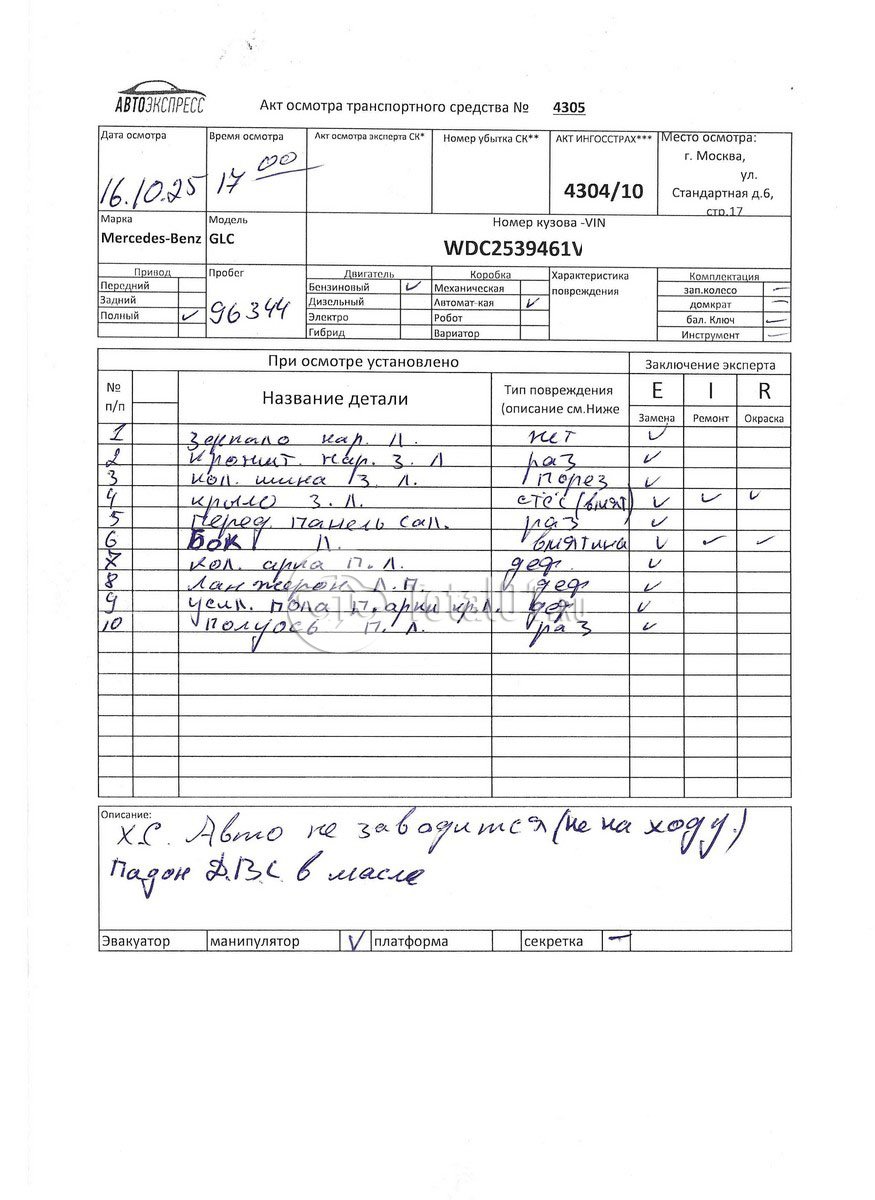 АВТОЭКСПРЕСС
Акт осмотра транспортного средства № 4305
Дата осмотра Время осмотра Акт осмотра эксперта СК* Номер убытка СК** АКТ ИНГОССТРАХ*** Место осмотра:
16.10.25 17 00 4304/10 г. Москва,
ул.
Стандартная д.6,
стр.17
Марка Модель Номер кузова -VIN
Mercedes-Benz GLC WDC2539461V
Привод Пробег Двигатель Коробка Характеристика повреждения Комплектация
Передний Бензиновый ✓ Механическая зап.колесо –
Задний Дизельный Автомат-кая ✓ домкрат –
Полный ✓ 96344 Электро Робот бал. Ключ –
Гибрид Вариатор Инструмент –
При осмотре установлено Заключение эксперта
№ п/п Название детали Тип повреждения (описание см.Ниже E I R
Замена Ремонт Окраска
1 Зеркало нар. Л. нет ✓
2 Кроншт. нар. З. Л раз ✓
3 Кол. шина З. Л. Порез ✓
4 Крыло З. Л. стёс (вмят) ✓ ✓ ✓
5 Перед. панель сал. раз ✓
6 Бок Л. вмятина ✓ ✓ ✓
7 Кол. арка П. Л. деф. ✓
8 Ланжерон Л. П. деф ✓
9 Усил. пола П. арки кр. Л. деф ✓
10 Полуось П. Л. раз ✓
Total01.ru
Описание:
Х.С. Авто не заводится (не на ходу.)
Падон ДВС в масле
Эвакуатор манипулятор ✓ платформа секретка –